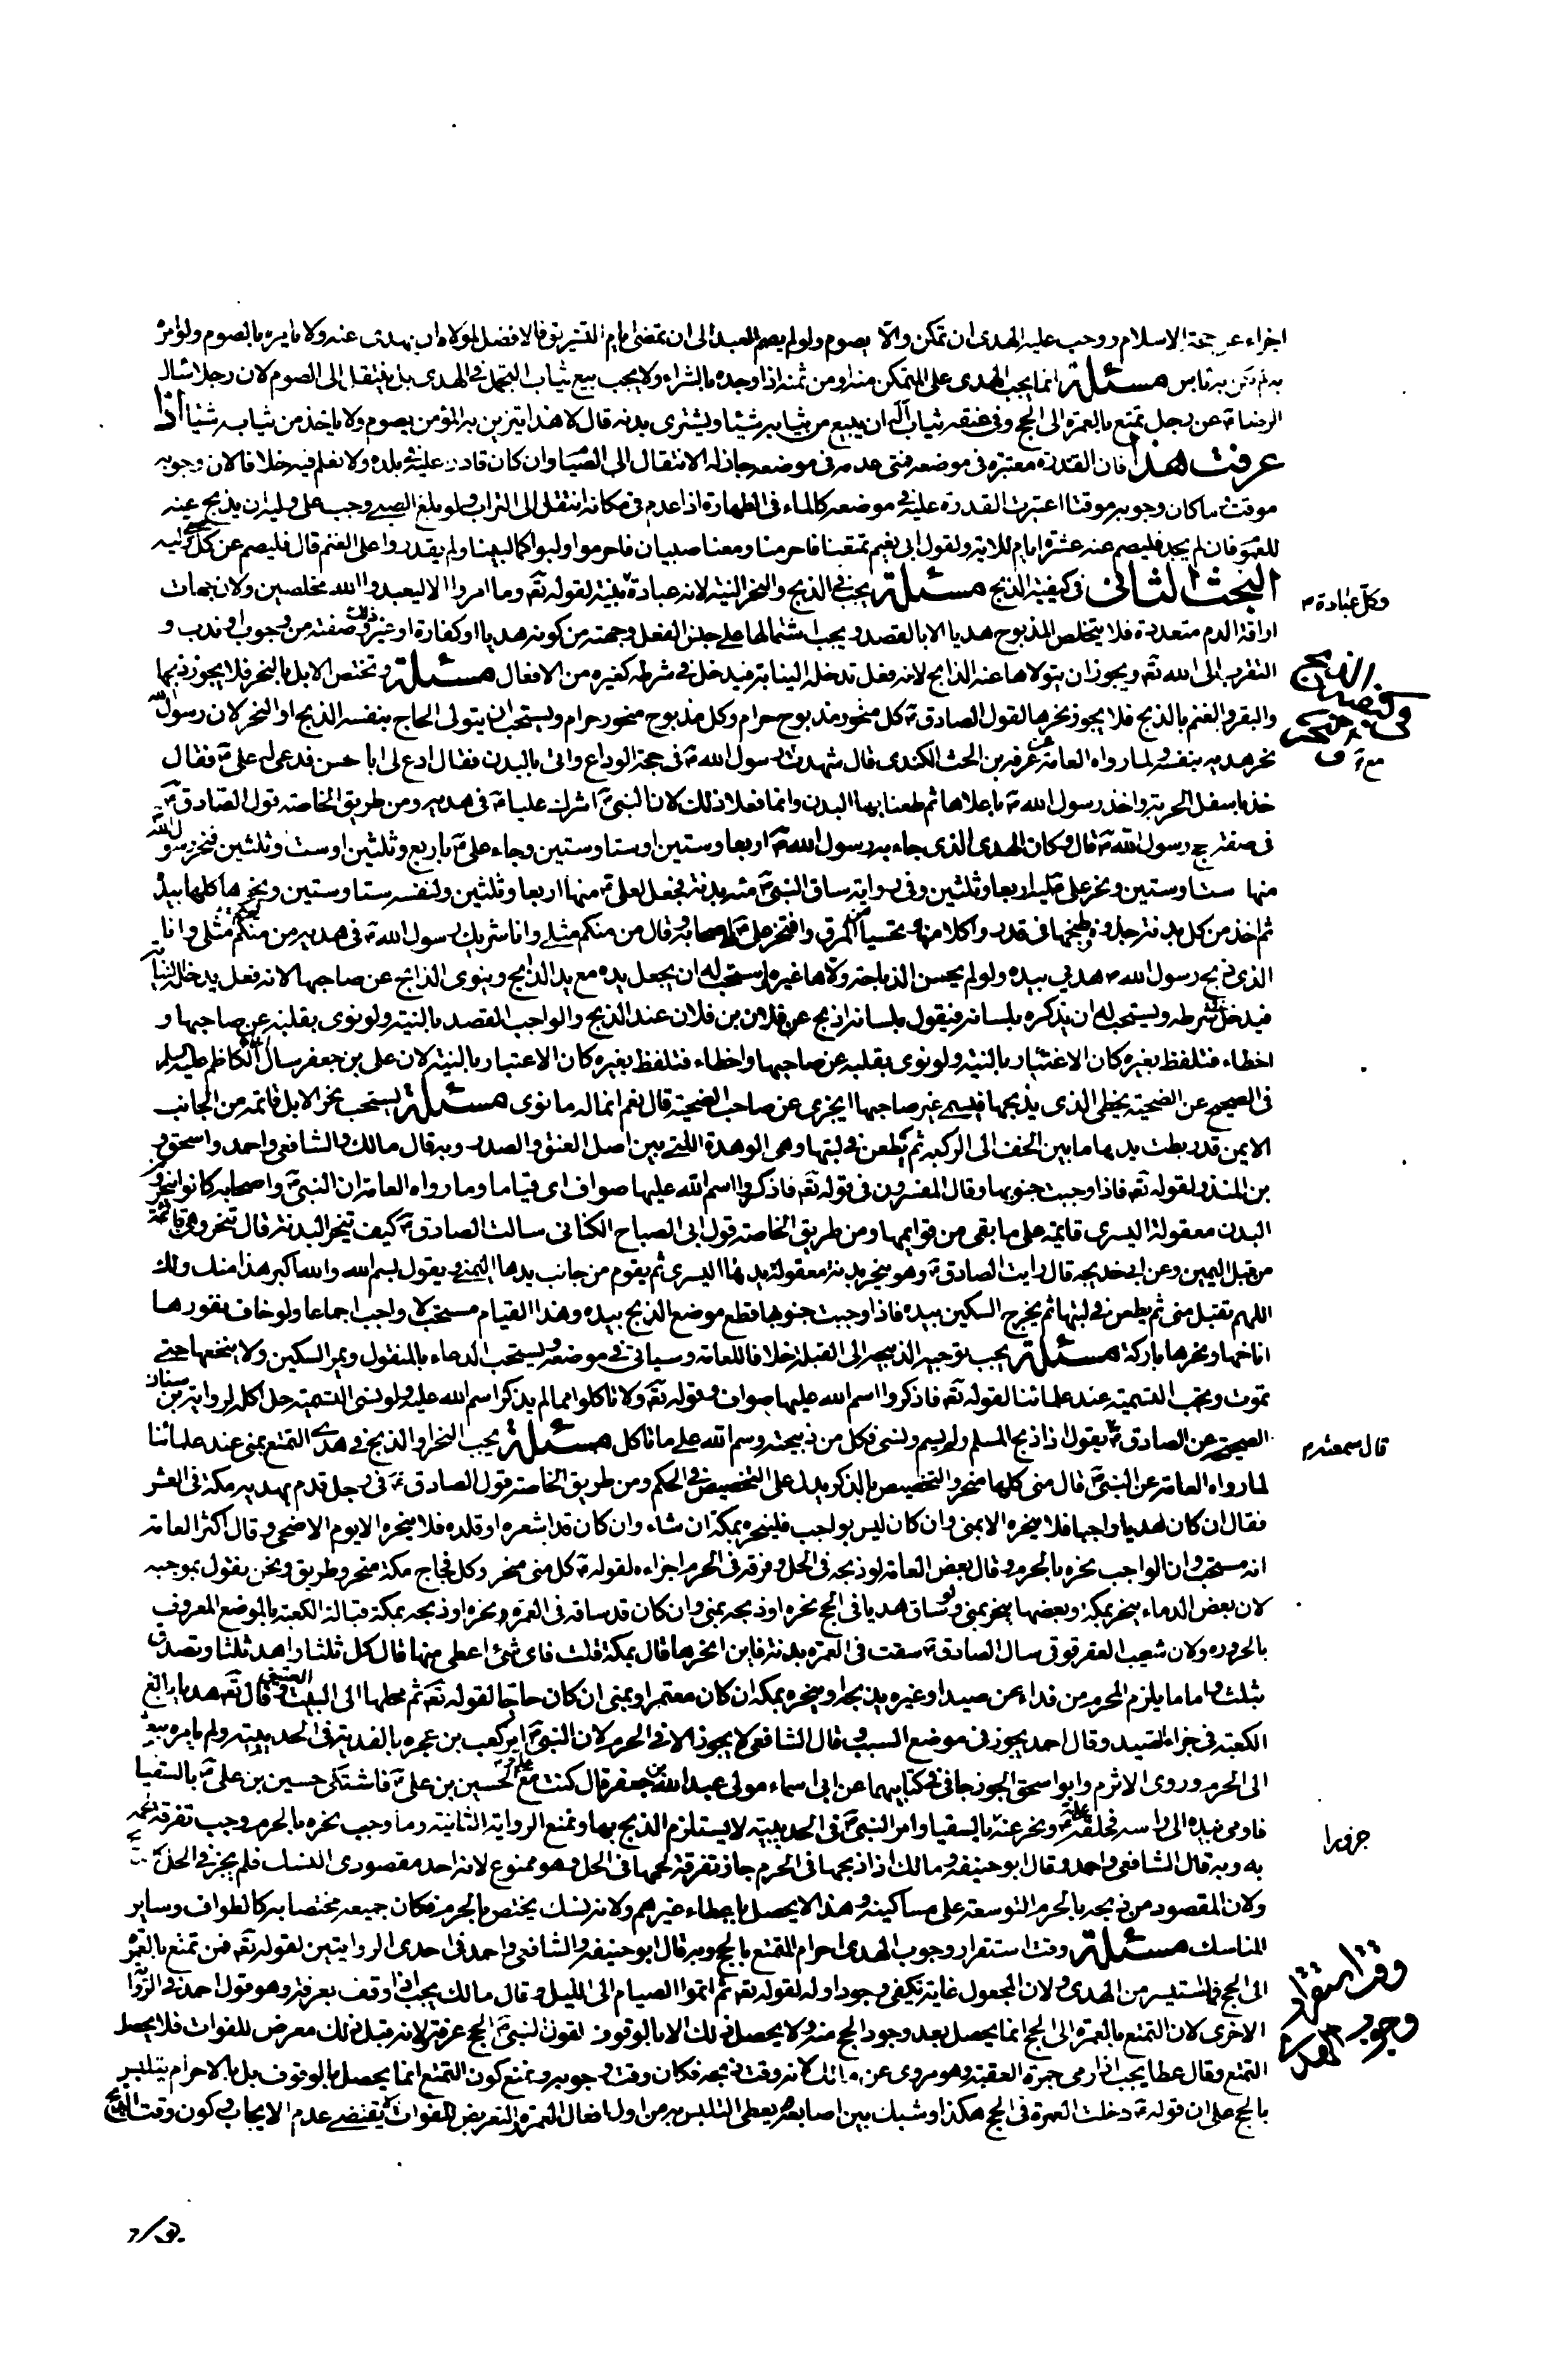 اجزاء عن حجة الاسلام ووجب عليه الهدى ان تمكن والا يصوم ولو لم يصم العبد الى ان تمضى ايام التشريق فالافضل لمولاه ان يهدى عنه ولا يامره بالصوم ولو امره
به لم يكن به باس مسئلة انما يجب الهدى على المتمكن منه او من ثمنه اذا وجده بالشراء ولا يجب بيع ثياب التجمل فى الهدى بل ينتقل الى الصوم لان رجلا سال
الرضا ع عن رجل تمتع بالعمرة الى الحج وفى عيبته ثياب أله ان يبيع من ثيابه شيئا ويشترى بدنه قال لا هذا يتزين به المؤمن يصوم ولا ياخذ من ثيابه شيئا اذا
عرفت هذا فان القدرة معتبرة فى موضعه فمتى عدمه فى موضعه جاز له الانتقال الى الصيام وان كان قادرا عليه فى بلده ولا نعلم فيه خلافا لان وجوبه
موقت وما كان وجوبه موقتا اعتبرت القدرة عليه فى موضعه كالماء فى الطهارة اذا عدم فى مكانه انتقل الى التراب ولو بلغ الصبى وجب على وليه ان يذبح عنه
للعموم فان لم يجد فليصم عنه عشرة ايام للاية ولقول ابى نعيم تمتعنا فاحرمنا ومعنا صبيان فاحرموا ولبوا كما لبينا ولم يقدروا على الغنم قال فليصم عن كل صبى وليه
البحث الثانى فى كيفية الذبح مسئلة يجب فى الذبح والنحر النية لانه عبادة بنية لقوله تع وما امروا الا ليعبدوا الله مخلصين ولان جهات
وكل عبادة
اراقة الدم متعددة فلا يتخلص المذبوح هديا الا بالقصد ويجب اشتمالها على جنس الفعل وجهته من كونه هديا او كفارة او غير ذلك وصفته من وجوب او ندب و
التقرب الى الله تع ويجوز ان يتولاها عنه الذابح لانه فعل تدخله النيابة فيدخل فى شرطه كغيره من الافعال مسئلة وتختص الابل بالنحر فلا يجوز ذبحها
والبقر والغنم بالذبح فلا يجوز نحرها لقول الصادق ع كل منحور مذبوح حرام وكل مذبوح منحور حرام ويستحب ان يتولى الحاج بنفسه الذبح او النحر لان رسول الله
نحر هديه بنفسه ولما رواه العامة عن غرفة بن الحرث الكندى قال شهدت رسول الله ص فى حجة الوداع واتى بالبدن فقال ادع لى ابا حسن فدعى له على ع فقال
خذ باسفل الحربة واخذ رسول الله ص باعلاها ثم طعنا بها البدن وانما فعلا ذلك لان النبى ص اشرك عليا ع فى هديه ومن طريق الخاصة قول الصادق ع
فى صفة حج رسول الله ص قال وكان الهدى الذى جاء به رسول الله ص اربعا وستين او ستا وستين وجاء على ع باربع وثلثين او ست وثلثين فنحر رسول الله
منها ستا وستين ونحر على ع اربعا وثلثين وفى رواية ساق النبى ص مئة بدنة فجعل لعلى ع منها اربعا وثلثين ولنفسه ستا وستين ونحرها كلها بيده
ثم اخذ من كل بدنة جذوة وطبخها فى قدر واكلا منها وتحسيا من المرق وافتخر على ع على اصحابه وقال من منكم مثلى وانا شريك رسول الله ص فى هديه من منكم مثلى وانا
الذى ذبح رسول الله ص هديى بيده ولو لم يحسن الذباحة ولاها غيره واستحب له ان يجعل يده مع يد الذابح وينوى الذابح عن صاحبها لانه فعل يدخله النيابة
فيدخل فى شرطه ويستحب له ان يذكره بلسانه فيقول بلسانه اذبح عن فلان بن فلان عند الذبح والواجب القصد بالنية ولو نوى بقلبه عن صاحبها و
اخطاء فتلفظ بغيره كان الاعتبار بالنية ولو نوى بقلبه عن صاحبها واخطاء فتلفظ بغيره كان الاعتبار بالنية لان على بن جعفر سال اخاه الكاظم عليه السلام
فى الصحيح عن الضحية يخطى الذى يذبحها فيسمى غير صاحبها ايجزى عن صاحب الضحية قال نعم انما له ما نوى مسئلة يستحب نحر الابل قائمة من الجانب
الايمن قد ربطت يدها ما بين الخف الى الركبة ثم يطعن فى لبتها وهى الوهدة اللتى بين اصل العنق والصدر وبه قال مالك والشافعى واحمد واسحق و
بن المنذر لقوله تع فاذا وجبت جنوبها وقال المفسرون فى قوله تع فاذكروا اسم الله عليها صواف اى قياما وما رواه العامة ان النبى ص واصحابه كانوا ينحرون
البدن معقولة اليسرى قائمة على ما بقى من قوائمها ومن طريق الخاصة قول ابى الصباح الكنانى سالت الصادق ع كيف تنحر البدنة قال تنحر وهى قائمة
من قبل اليمين وعن ابى خديجه قال رايت الصادق ع وهو ينحر بدنة معقولة يدها اليسرى ثم يقوم من جانب يدها اليمنى ويقول بسم الله والله اكبر هذا منك ولك
اللهم تقبل منى ثم يطعن فى لبتها ثم يخرج السكين بيده فاذا وجبت جنوبها قطع موضع الذبح بيده وهذا القيام مستحب لا واجب اجماعا ولو خاف نفورها
اناخها ونحرها باركة مسئلة يجب توجيه الذبيحه الى القبلة خلافا للعامة وسياتى فى موضعه ويستحب الدعاء بالمنقول ويمر السكين ولا ينخعها حتى
تموت ويجب التسمية عند علمائنا لقوله تع فاذكروا اسم الله عليها صواف وقوله تع ولا تاكلوا مما لم يذكر اسم الله عليه ولو نسى التسمية حل اكله لرواية بن سنان
الصحيحة عن الصادق ع يقول اذا ذبح المسلم ولم يسم ونسى فكل من ذبيحته وسم الله على ما تاكل مسئلة يجب النحر او الذبح فى هدى التمتع بمنى عند علمائنا
قال سمعته
لما رواه العامة عن النبى ص قال منى كلها منحر والتخصيص بالذكر يدل على التخصيص فى الحكم ومن طريق الخاصة قول الصادق ع فى رجل قدم بهديه مكة فى العشر
فقال ان كان هديا واجبا فلا ينحره الا بمنى وان كان ليس بواجب فلينحره بمكة ان شاء وان كان قد اشعره او قلده فلا ينحره الا يوم الاضحى وقال اكثر العامة
انه مستحب وان الواجب نحره بالحرم وقال بعض العامة لو ذبحه فى الحل وفرقه فى الحرم اجزاءه لقوله ع كل منى منحر وكل فجاج مكة منحر وطريق ونحن نقول بموجبه
لان بعض الدماء ينحر بمكة وبعضها ينحر بمنى ولو ساق هديا فى الحج نحره او ذبحه بمنى وان كان قد ساقه فى العمرة نحره او ذبحه بمكة قبالة الكعبة بالموضع المعروف
بالحزورة ولان شعيب العقرقوفى سال الصادق ع سقت فى العمرة بدنة فاين انحرها قال بمكة قلت فاى شئ اعطى منها قال كل ثلثا واهد ثلثا وتصدق
بثلث واما ما يلزم المحرم من فداء عن صيد او غيره يذبحه او ينحره بمكة ان كان معتمرا وبمنى ان كان حاجا لقوله تع ثم محلها الى البيت العتيق وقال تع هديا بالغ
الكعبة فى جزاء الصيد وقال احمد يجوز فى موضع السبب وقال الشافعى لا يجوز الا فى الحرم لان النبى ص امر كعب بن عجره بالفدية فى الحديبية ولم يامره ببعثه
الى الحرم وروى الاثرم وابو اسحق الجوزجانى فى كتابيهما عن ابى اسماء مولى عبد الله بن جعفر قال كنت مع على والحسين بن على ع فاشتكى حسين بن على ع بالسقيا
فاومى بيده الى راسه فحلقه على ع ونحر عنه بالسقيا وامر النبى ص فى الحديبية لا يستلزم الذبح بها ونمنع الرواية الثانية وما وجب نحره بالحرم وجب تفرقة لحمه
جزورا
به وبه قال الشافعى واحمد وقال ابو حنيفة ومالك اذا ذبحها فى الحرم جاز تفرقة لحمها فى الحل وهو ممنوع لانه احد مقصودى النسك فلم يجز فى الحل
ولان المقصود من ذبحه بالحرم التوسعة على مساكينه وهذا لا يحصل باعطاء غيرهم ولانه نسك يختص بالحرم فكان جميعه مختصا به كالطواف وساير
المناسك مسئلة وقت استقرار وجوب الهدى احرام المتمتع بالحج وبه قال ابو حنيفة والشافعى واحمد فى احدى الروايتين لقوله تع فمن تمتع بالعمرة
وقت استقرار
وجوب الهدى
الى الحج فما استيسر من الهدى ولان المجعول غاية يكفى وجود اوله لقوله تع ثم اتموا الصيام الى الليل وقال مالك يجب اذا وقف بعرفة وهو قول احمد فى الرواية
الاخرى لان التمتع بالعمرة الى الحج انما يحصل بعد وجود الحج منه ولا يحصل ذلك الا بالوقوف لقول النبى ص الحج عرفة ولانه قبل ذلك معرض للفوات فلا يحصل
التمتع وقال عطا يجب اذا رمى جمرة العقبة وهو مروى عن مالك لانه وقت ذبحه فكان وقت وجوبه ونمنع كون التمتع انما يحصل بالوقوف بل بالاحرام يتلبس
بالحج على ان قوله ع دخلت العمرة فى الحج هكذا وشبك بين اصابعه يعطى التلبس به من اول افعال العمرة والتعريض للفوات لا يقتضى عدم الايجاب وكون وقت الذبح